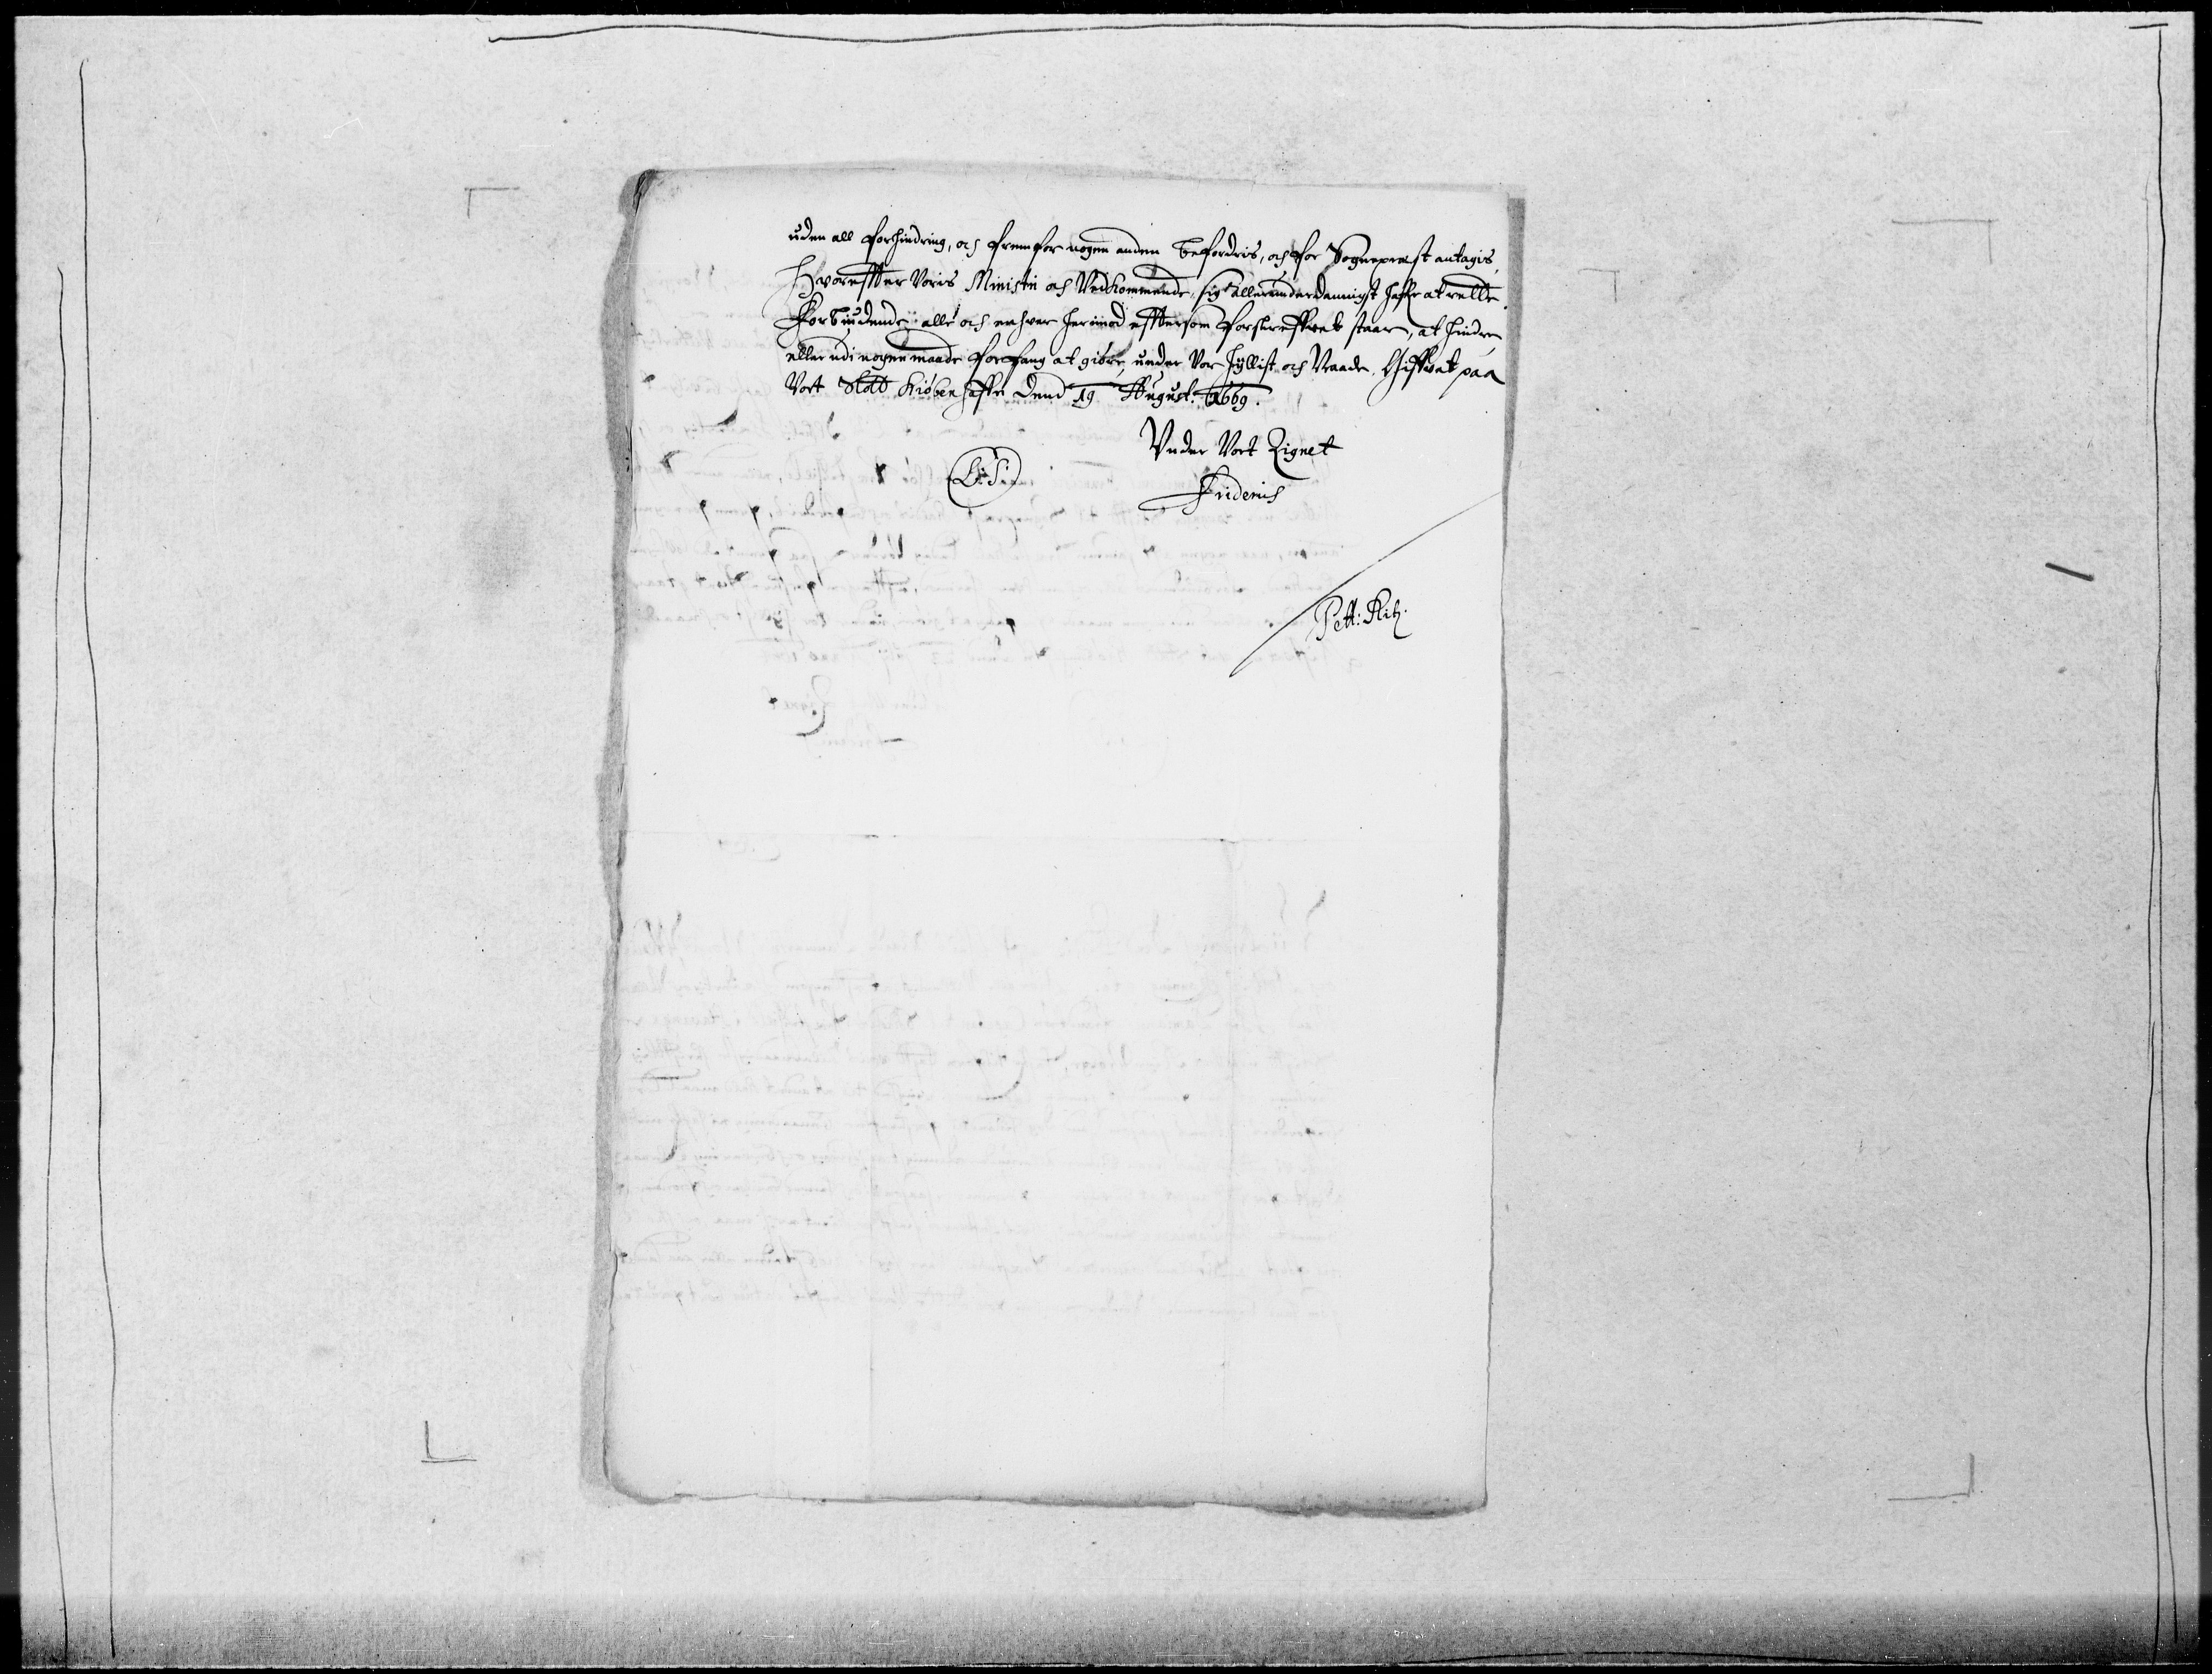 uden all forhindring, och fremfor nogen anden befordris, och for Sogneprest antagis,
Hvoreffter Voris Ministri och Vedkommende, sig allerunderdannigst haffe at rette
Forbiudende alle och enhver herimod efftersom forskreffvet staar, at hindre,
eller udi nogen maade forfang at giöre, under Vor hyllist och Naade. Giffvet paa
Vort Slott Kiöbenhaffn Dend 19 August: 1669.
Under Vort Zignet
L: S:
Friderich
Pett: Ritz.